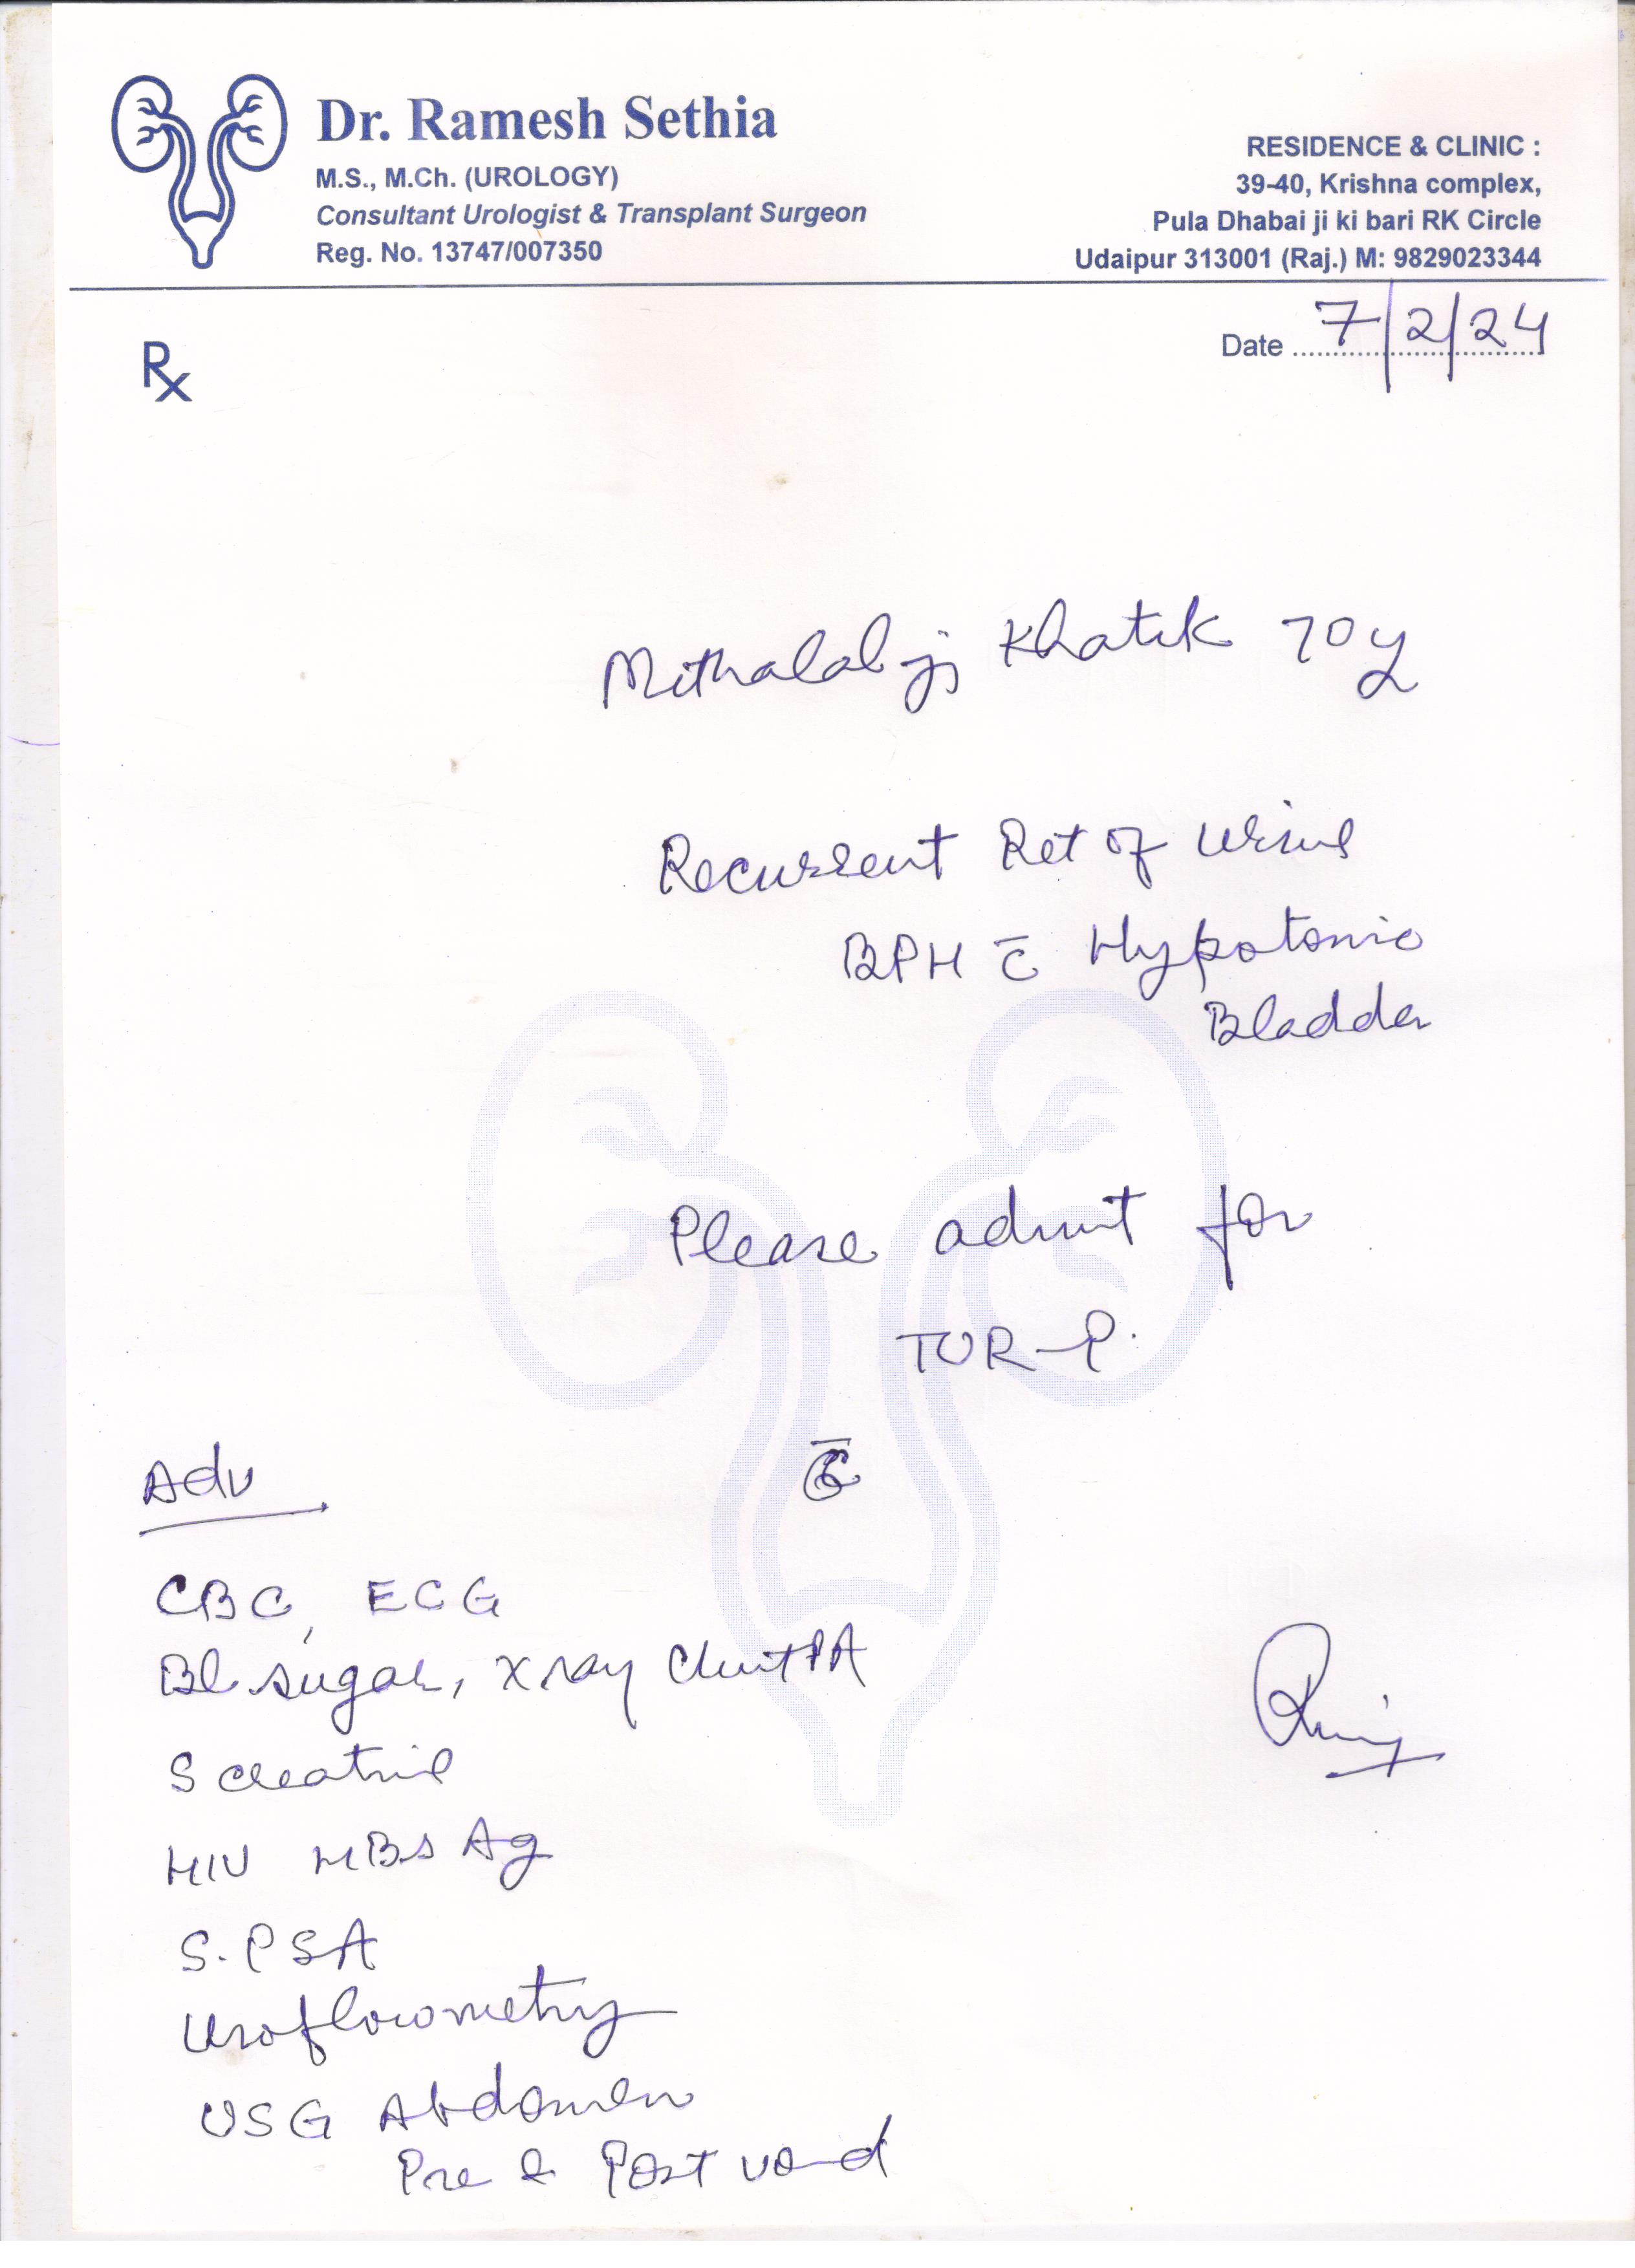 Dr. Ramesh Sethia
M.S., M.Ch. (UROLOGY)
Consultant Urologist & Transplant Surgeon
Reg. No. 13747/007350
RESIDENCE & CLINIC :
39-40, Krishna complex,
Pula Dhabai ji ki bari RK Circle
Udaipur 313001 (Raj.) M: 9829023344
Date 7/2/24
Rx
Mithalal ji Khatik 70y
Recurrent Ret of Urine
BPH c̄ Hypotonic
Bladder
Please admit for
TUR-P.
Adv
CBC, ECG
Bl sugar, X ray Chest PA
S creatnine
HIV HBsAg
S.PSA
Uroflowometry
USG Abdomen
Pre & Post void